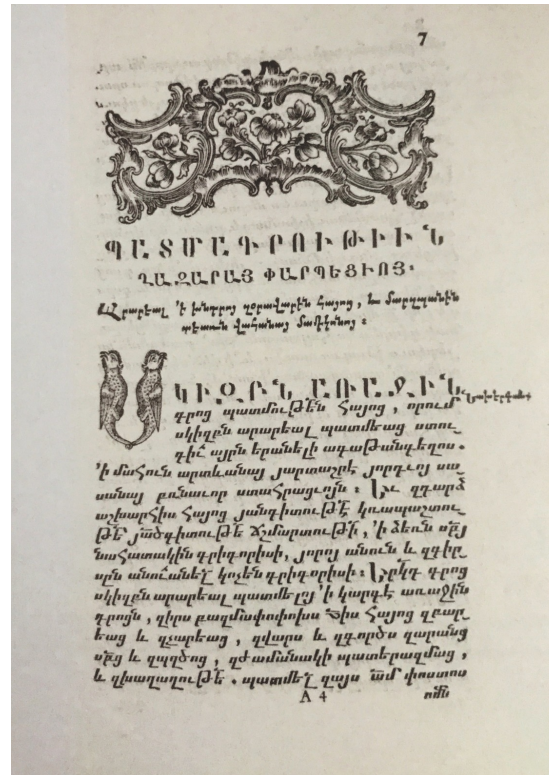 7
ՊԱՏՄԱԳՐՈՒԹԻՒՆ
ՂԱԶԱՐԱՅ ՓԱՐՊԵՑԻՈՅ։
Արարեալ ՚ի խնդրոյ զօրավարին Հայոց, և մարզպանին
տեառն Վահանայ Մամիկոնոյ ։
ՍԿԻԶԲՆ ԱՌԱՋԻՆ
Նախերգան
գրոց պատմութեն Հայոց , որում
սկիզբն արարեալ պատմեաց ստու
գիւ այրն երանելի ագաթանգեղոս .
՚ի մահուն արտևանայ յարտաշրէ յորդւոյ սա
սանայ բռնաւոր ստահրացւոյն ։ Եւ զդարձ
աշխարհիս Հայոց յանգիտութէ կռապաշտու
թե յածգիտութե ճշմարտութի , ՚ի ձեռն սքյ
նահատակին գրիգորիսի, յորոյ անուն և զգիր
սըն անուանել կոչեն գրիգորիսի ։ Երկդ գրոց
սկիզբն արարեալ պատմելոյ ՚ի կարգէ առաջին
գրոյն , զիրս բազմափոփոխս Հայոց զբար
եաց և զչարեաց , զվարս և զգործս զարանց
սքց և զպղծոց , զժամանակի պատերազմաց ,
և զխաղաղութե . պատմել զայս ամ փոստոս
A 4